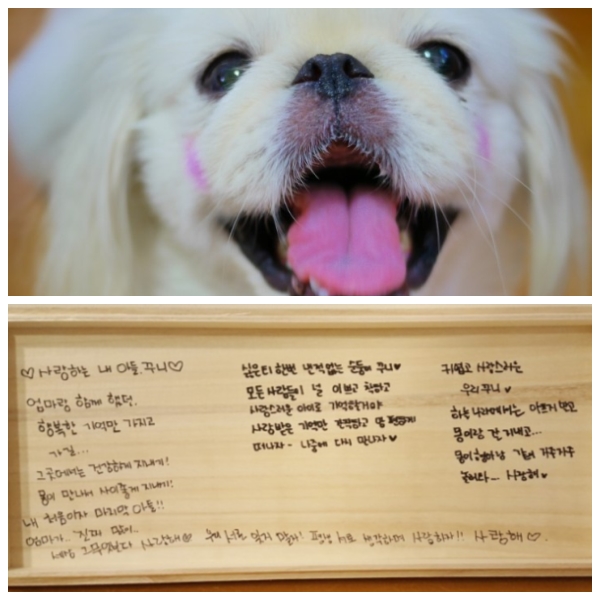 ♡사랑하는 내 아들.꾸니♡
엄마랑 함께 했던.
행복한 기억만 가지고
가길...
그곳에서는 건강하게 지내기!
뭉이 만나서 사이좋게 지내기!
내 처음이자 마지막 아들!!
엄마가.. 진짜 많이..
그 무엇보다 사랑해♡
싫은티 한번 낸적없는 순둥이 꾸니♥
모든 사람들이 널 이쁘고 착하고
사랑스러운 아이로 기억할거야
사랑받은 기억만 간직하고 맘 편하게
떠나자~ 나중에 다시 만나자♥
귀엽고 사랑스러운
우리 꾸니♥
하늘나라에서는 아프지 말고
뭉이랑 잘 지내고...
사랑해♥
우리 서로 잊지 말자! 평생 서로 생각하며 사랑하자!! 사랑해♡.